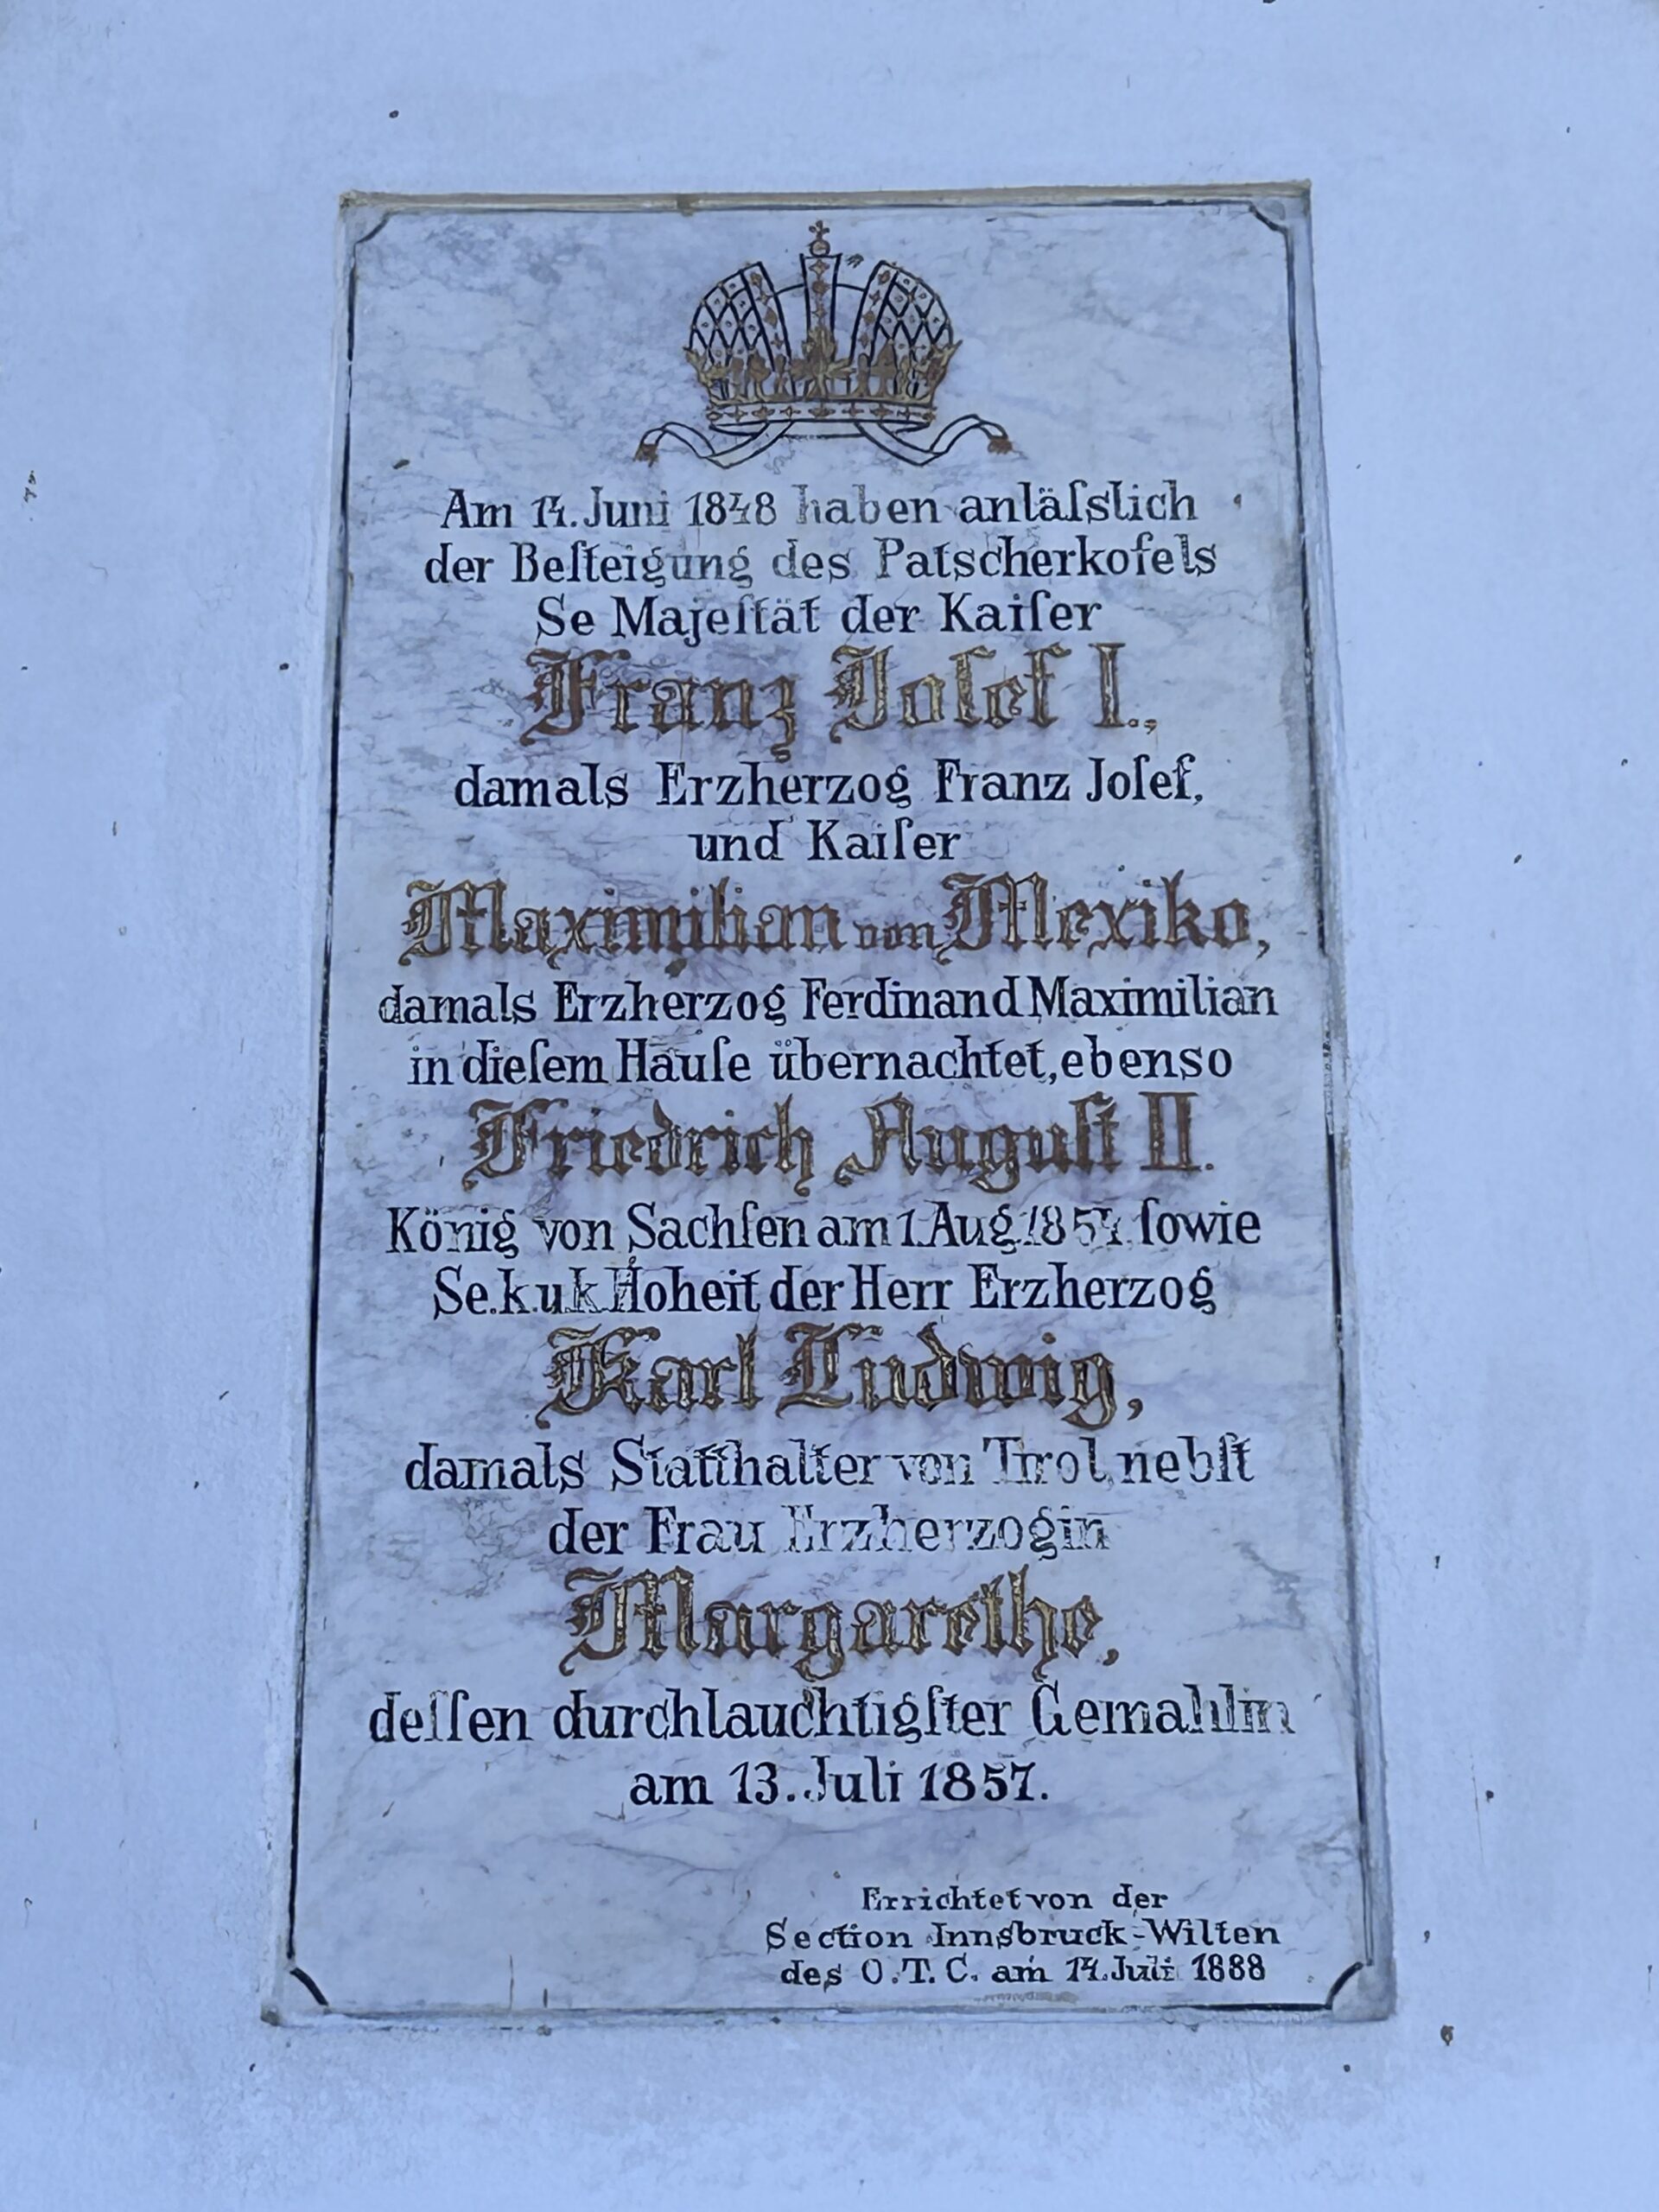 Am 14. Juni 1848 haben anläſslich
der Beſteigung des Patscherkofels
Se Majeſtät der Kaiſer
Franz Joſef I.,
damals Erzherzog Franz Joſef,
und Kaiſer
Maximilian von Mexiko,
damals Erzherzog Ferdinand Maximilian
in dieſem Hauſe übernachtet, ebenso
Friedrich Auguſt II.
König von Sachſen am 1. Aug. 1854 ſowie
Se. k. u. k. Hoheit der Herr Erzherzog
Karl Ludwig,
damals Statthalter von Tirol, nebſt
der Frau Erzherzogin
Margarethe,
deſſen durchlauchtigſter Gemahlin
am 13. Juli 1857.
Errichtet von der
Section Innsbruck-Wilten
des O.T.C. am 14. Juli 1888